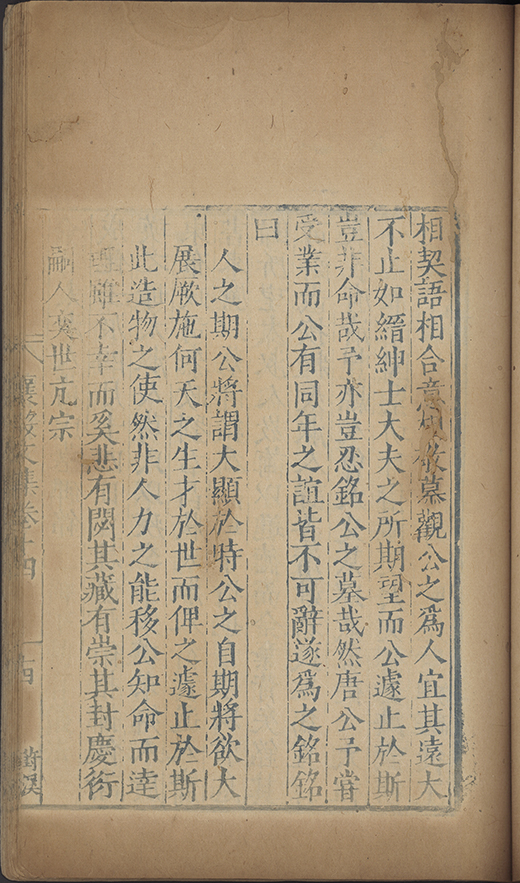 相契語相合意相敬慕觀公之爲人宜其遠大
不止如縉紳士大夫之所期望而公遽止於斯
豈非命哉予亦豈忍銘公之墓哉然唐公予嘗
受業而公有同年之誼皆不可辭遂爲之銘銘
曰
人之期公將謂大顯於時公之自期將欲大
展厥施何天之生才於世而俾之遽止於斯
此造物之使然非人力之能移公知命而達
理雖不幸而奚悲有閟其藏有崇其封慶衍
嗣人奕世亢宗
襄毅文集卷十四 十四